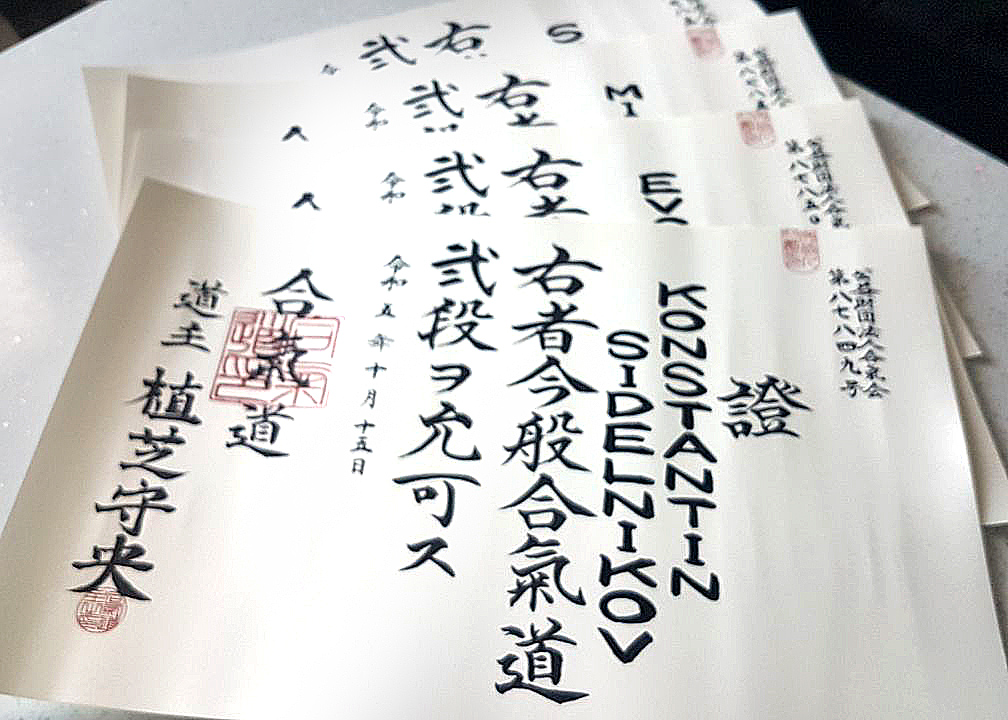 公益財団法人合氣会
第八七八四九号
證
KONSTANTIN
SIDELNIKOV
右者今般合氣道
弐段ヲ允可ス
令和五年十月十五日
合氣道
道主 植芝守央
公益財団法人合氣
第八七八五
EV
右
弐
令和
公益財団法人
第八七八
MI
右
弐
令和
S
右
弐
令